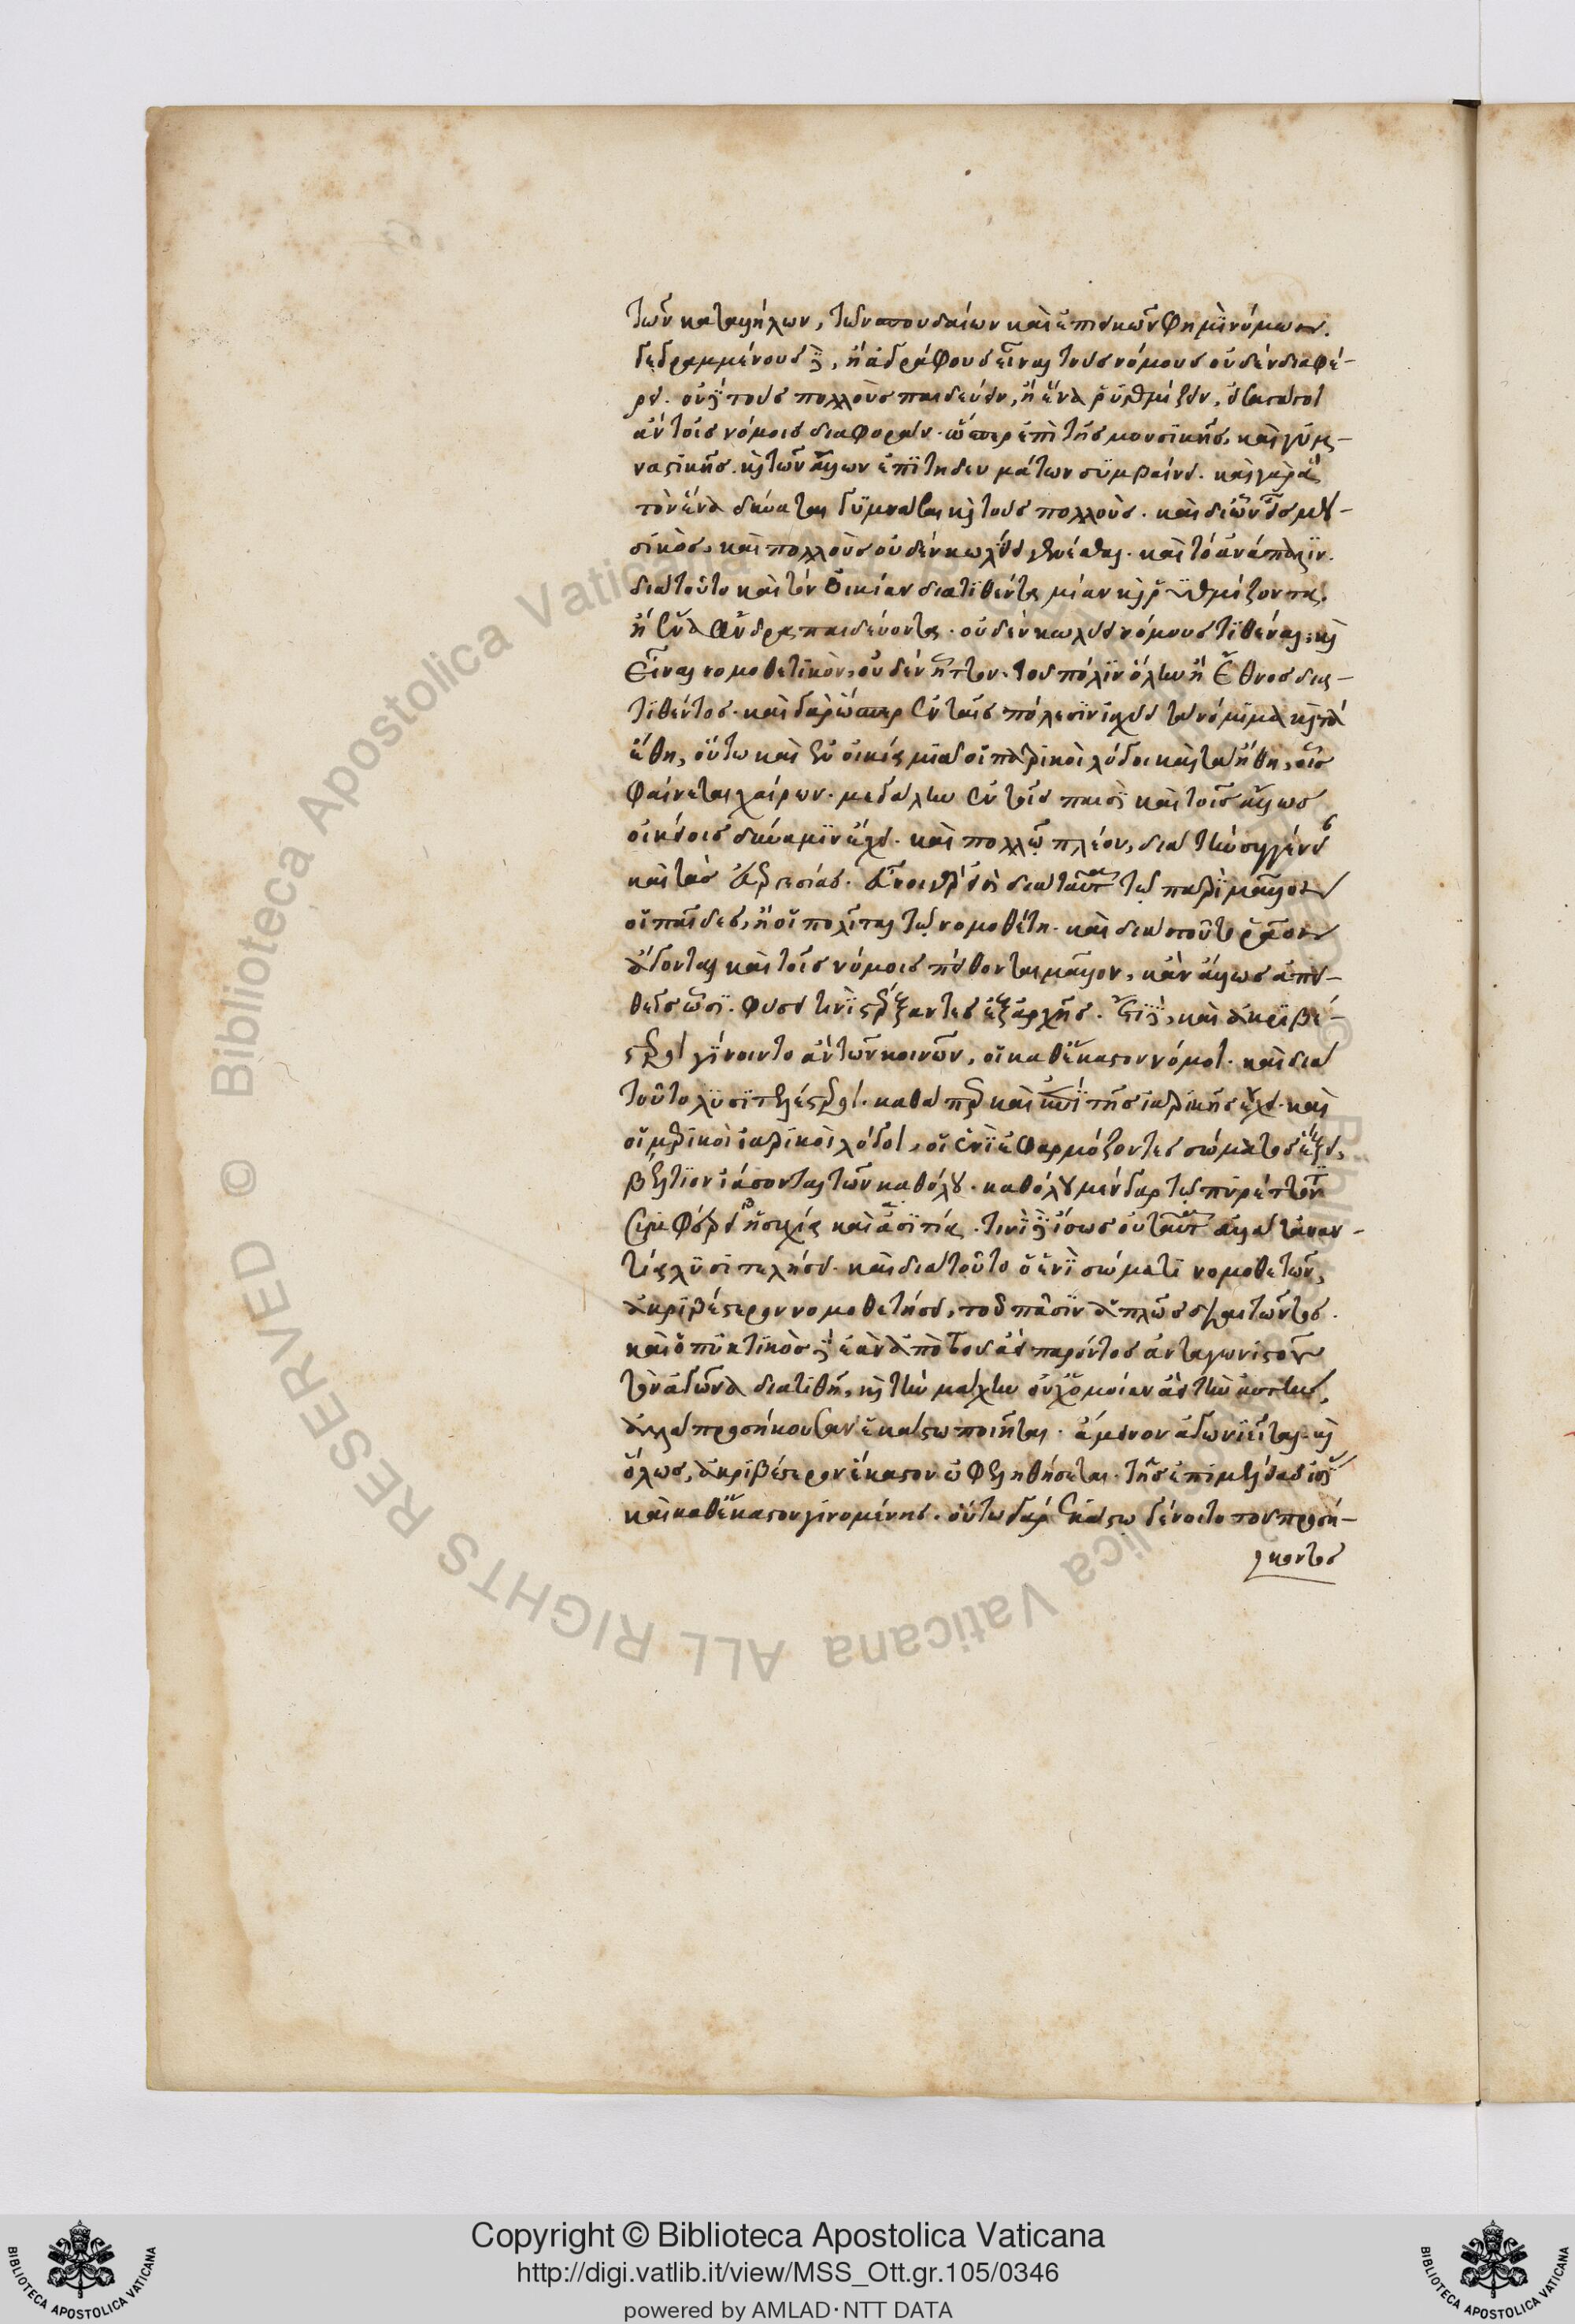 τῶν καταλλήλων, τῶν σπουδαίων καὶ ἐπιεικῶν φημὶ νόμων.
γεγραμμένους δὲ, ἢ ἀγράφους εἶναι τοὺς νόμους οὐδὲν διαφέ-
ρει. οὐδὲ τοὺς πολλοὺς παιδεύειν, ἢ ἕνα ῥυθμίζειν,
ἂν τοῖς νόμοις διαφοράν. ὥσπερ ἐπὶ τῆς μουσικῆς, καὶ γυμ-
ναστικῆς. καὶ τῶν ἄλλων ἐπιτηδευμάτων συμβαίνει. καὶ γὰρ
τὸν ἕνα δύναται γυμνάσαι καὶ τοὺς πολλοὺς. καὶ μου-
σικὸς, καὶ πολλοὺς οὐδὲν κωλύει γενέσθαι. καὶ τὸ ἀνάπαλιν.
διὰ τοῦτο καὶ τὸν οἰκίαν διατιθέντα μίαν καὶ ῥυθμίζοντα.
ἢ ἕνα ἄνδρα παιδεύοντα. οὐδὲν κωλύει νόμους τιθέναι, καὶ
εἶναι νομοθετικὸν, οὐδὲν ἧττον. τοῦ πόλιν ὅλην ἢ ἔθνος δια-
τιθέντος. καὶ γὰρ ὥσπερ ἐν ταῖς πόλεσιν ἰσχύει τὰ νόμιμα καὶ τὰ
ἔθη, οὕτω καὶ ἐν οἰκίᾳ μιᾷ οἱ πατρικοὶ λόγοι καὶ τὰ ἤθη, οἷς
φαίνεται χαίρων. μεγάλην ἐν τοῖς παισὶ καὶ τοῖς ἄλλως
οἰκείοις δύναμιν ἔχει. καὶ πολλῷ πλέον, διὰ τὴν συγγένειαν
καὶ τὰς εὐεργεσίας. εὖνοι γὰρ εἰσὶ διὰ ταῦτα τῷ πατρὶ μᾶλλον
οἱ παῖδες, ἢ οἱ πολῖται τῷ νομοθέτῃ. καὶ διὰ τοῦτο ῥᾷον
ἄγονται καὶ τοῖς νόμοις πείθονται μᾶλλον, κἂν ἄλλως ἀπει-
θεῖς ὦσι. φύσει τινὶ στέρξαντες ἐξ ἀρχῆς. ἔτι δὲ, καὶ ἀκριβέ-
στεροι γίνοιντο ἂν τῶν κοινῶν, οἱ καθ' ἕκαστον νόμοι. καὶ διὰ
τοῦτο λυσιτελέστεροι. καθάπερ καὶ ἐπὶ τῆς ἰατρικῆς ἔχει. καὶ
οἱ μερικοὶ ἰατρικοὶ λόγοι, οἱ ἑνὶ ἐφαρμόζοντες σώματος ἕξει,
βέλτιον ἰάσονται τῶν καθόλου. καθόλου μὲν γὰρ τῷ πυρέττοντι
συμφέρει ἡσυχία καὶ ἀσιτία. τινὶ δὲ ἴσως οὐ ταῦτα ἀλλὰ τἀναν-
τία λυσιτελήσει. καὶ διὰ τοῦτο ὁ ἑνὶ σώματι νομοθετῶν,
ἀκριβέστερον νομοθετήσει, τοῦ πᾶσιν ἁπλῶς διαιτῶντος.
καὶ ὁ πυκτικὸς δὲ ἐὰν ἀπὸ τοῦ ἀεὶ παρόντος ἀνταγωνιστοῦ
τὸν ἀγῶνα διατιθῇ, καὶ τὴν μάχην οὐχ ὁμοίαν ἀεὶ τὴν αὐτὴν,
ἀλλὰ προσήκουσαν ἑκάστῳ ποιῆται. ἄμεινον ἀγωνιεῖται. καὶ
ὅλως, ἀκριβέστερον ἕκαστον ὠφεληθήσεται. τῆς ἐπιμελείας ἰδίᾳ
καὶ καθ' ἕκαστον γινομένης. οὕτω γὰρ ἑκάστῳ γένοιτο τοῦ προσή-
κοντος
Copyright © Biblioteca Apostolica Vaticana
http://digi.vatlib.it/view/MSS_Ott.gr.105/0346
powered by AMLAD·NTT DATA
BIBLIOTECA APOSTOLICA VATICANA
BIBLIOTECA APOSTOLICA VATICANA
© Biblioteca Apostolica Vaticana ALL RIGHTS RESERVED